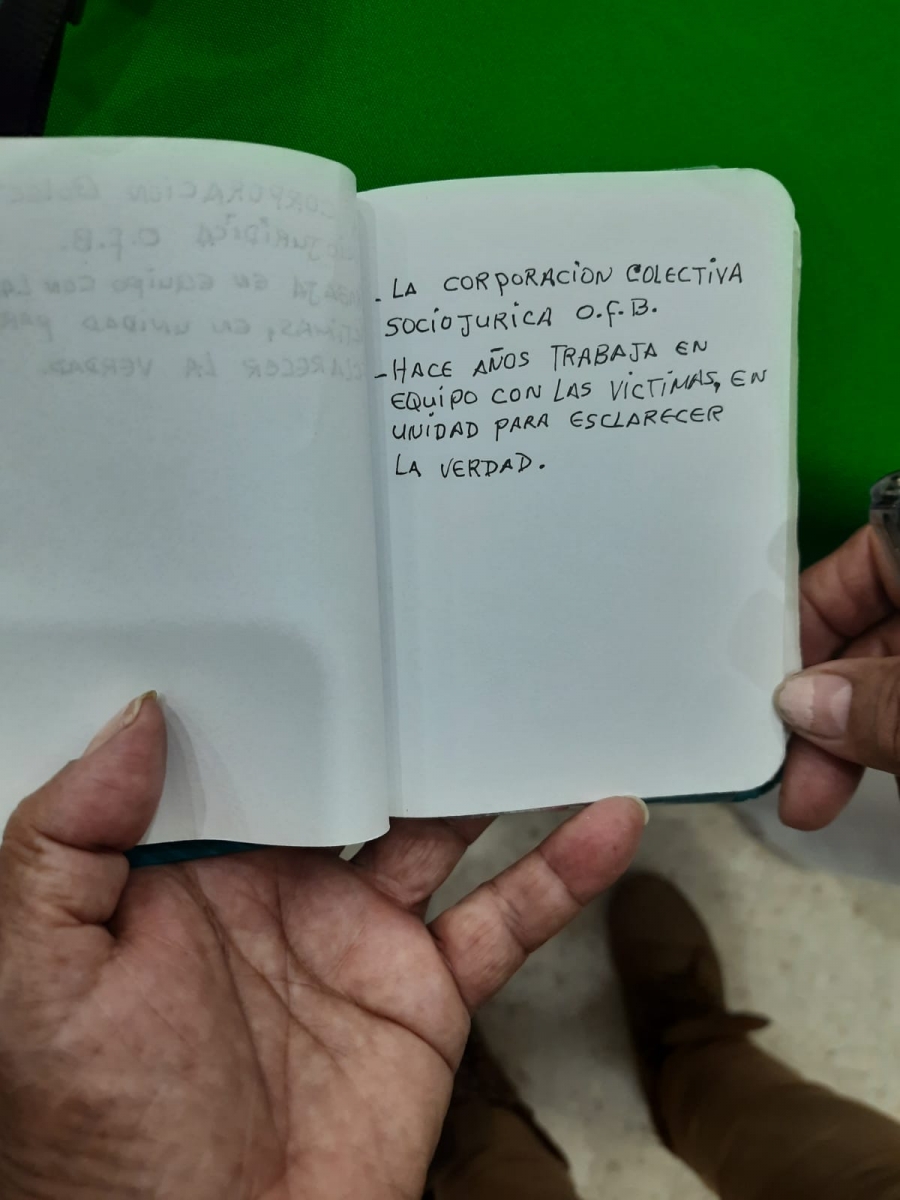 - LA CORPORACIÓN COLECTIVA
SOCIOJURICA O.F.B.
- HACE AÑOS TRABAJA EN
EQUIPO CON LAS VICTIMAS, EN
UNIDAD PARA ESCLARECER
LA VERDAD.